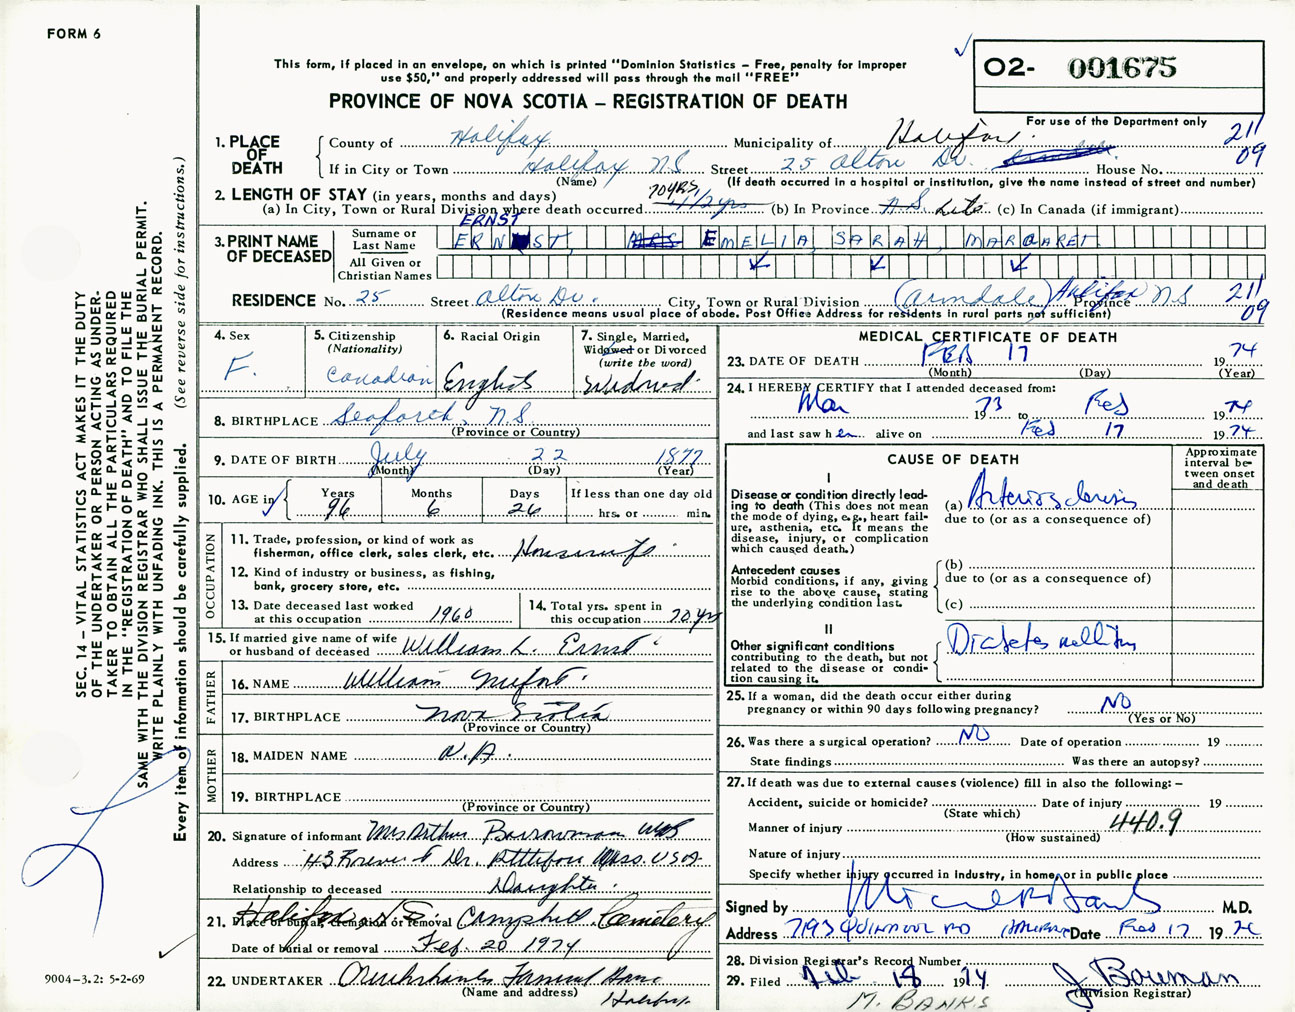 FORM 6
This form, if placed in an envelope, on which is printed "Dominion Statistics – Free, penalty for improper
use $50," and properly addressed will pass through the mail "FREE"
PROVINCE OF NOVA SCOTIA – REGISTRATION OF DEATH
02- 001675
For use of the Department only
211
09
1. PLACE OF DEATH
County of Halifax Municipality of Halifax
If in City or Town Halifax N.S. Street 25 Alton Dr. House No.
(Name) (If death occurred in a hospital or institution, give the name instead of street and number)
2. LENGTH OF STAY (in years, months and days)
(a) In City, Town or Rural Division where death occurred 70 YRS (b) In Province N.S. Life (c) In Canada (if immigrant)
ERNST
3. PRINT NAME OF DECEASED
Surname or Last Name ERNST, MRS EMELIA, SARAH, MARGARET
All Given or Christian Names
RESIDENCE No. 25 Street Alton Dr. City, Town or Rural Division (Armdale) Halifax Province N S
211
09
(Residence means usual place of abode. Post Office Address for residents in rural parts not sufficient)
4. Sex
F.
5. Citizenship
(Nationality)
Canadian
6. Racial Origin
English
7. Single, Married,
Widowed or Divorced
(write the word)
Widowed
8. BIRTHPLACE Seaforth, N.S.
(Province or Country)
9. DATE OF BIRTH July 22 1877
(Month) (Day) (Year)
10. AGE in
Years 96
Months 6
Days 26
If less than one day old
hrs. or min.
OCCUPATION
11. Trade, profession, or kind of work as
fisherman, office clerk, sales clerk, etc. Housewife
12. Kind of industry or business, as fishing,
bank, grocery store, etc.
13. Date deceased last worked
at this occupation 1960
14. Total yrs. spent in
this occupation 70 yrs
15. If married give name of wife
or husband of deceased William L. Ernst
FATHER
16. NAME William
17. BIRTHPLACE Nova Scotia
(Province or Country)
MOTHER
18. MAIDEN NAME N.A.
19. BIRTHPLACE
(Province or Country)
20. Signature of informant Mrs Arthur Borrowman
Address 43 Dr. Mass. USA
Relationship to deceased Daughter
21. Place of burial, cremation or removal Halifax N S Campbell Cemetery
Date of burial or removal Feb. 20 1974
22. UNDERTAKER Cruikshanks Funeral Home
(Name and address) Halifax
MEDICAL CERTIFICATE OF DEATH
23. DATE OF DEATH FEB 17 1974
(Month) (Day) (Year)
24. I HEREBY CERTIFY that I attended deceased from:
Mar 1973 to Feb 1974
and last saw her alive on Feb 17 1974
CAUSE OF DEATH
Approximate
interval be-
tween onset
and death
I
Disease or condition directly lead-
ing to death (This does not mean
the mode of dying, e.g., heart fail-
ure, asthenia, etc. It means the
disease, injury, or complication
which caused death.)
(a) Arteriosclerosis
due to (or as a consequence of)
Antecedent causes
Morbid conditions, if any, giving
rise to the above cause, stating
the underlying condition last.
(b)
due to (or as a consequence of)
(c)
II
Other significant conditions
contributing to the death, but not
related to the disease or condi-
tion causing it.
Diabetes mellitus
25. If a woman, did the death occur either during
pregnancy or within 90 days following pregnancy? NO
(Yes or No)
26. Was there a surgical operation? NO Date of operation 19
State findings Was there an autopsy?
27. If death was due to external causes (violence) fill in also the following: –
Accident, suicide or homicide? Date of injury 19
(State which)
Manner of injury 440.9
(How sustained)
Nature of injury
Specify whether injury occurred in industry, in home, or in public place
Signed by M.D.
Address 7193 QUINPOOL RD Date Feb 17 1974
28. Division Registrar's Record Number
29. Filed Feb 18 1974 J. Bowman
(Division Registrar)
M. BANKS
SEC. 14 – VITAL STATISTICS ACT MAKES IT THE DUTY
OF THE UNDERTAKER OR PERSON ACTING AS UNDER-
TAKER TO OBTAIN ALL THE PARTICULARS REQUIRED
IN THE "REGISTRATION OF DEATH" AND TO FILE THE
SAME WITH THE DIVISION REGISTRAR WHO SHALL ISSUE THE BURIAL PERMIT.
WRITE PLAINLY WITH UNFADING INK. THIS IS A PERMANENT RECORD.
Every item of information should be carefully supplied. (See reverse side for instructions.)
9004–3.2: 5-2-69